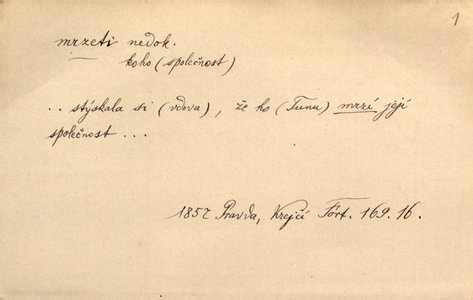 1
mrzeti nedok.
koho (společnost)
.. stýskala si (vdova), že ho (Tunu) mrzí její
společnost ...
1857 Pravda, Krejčí Fört. 169.16.